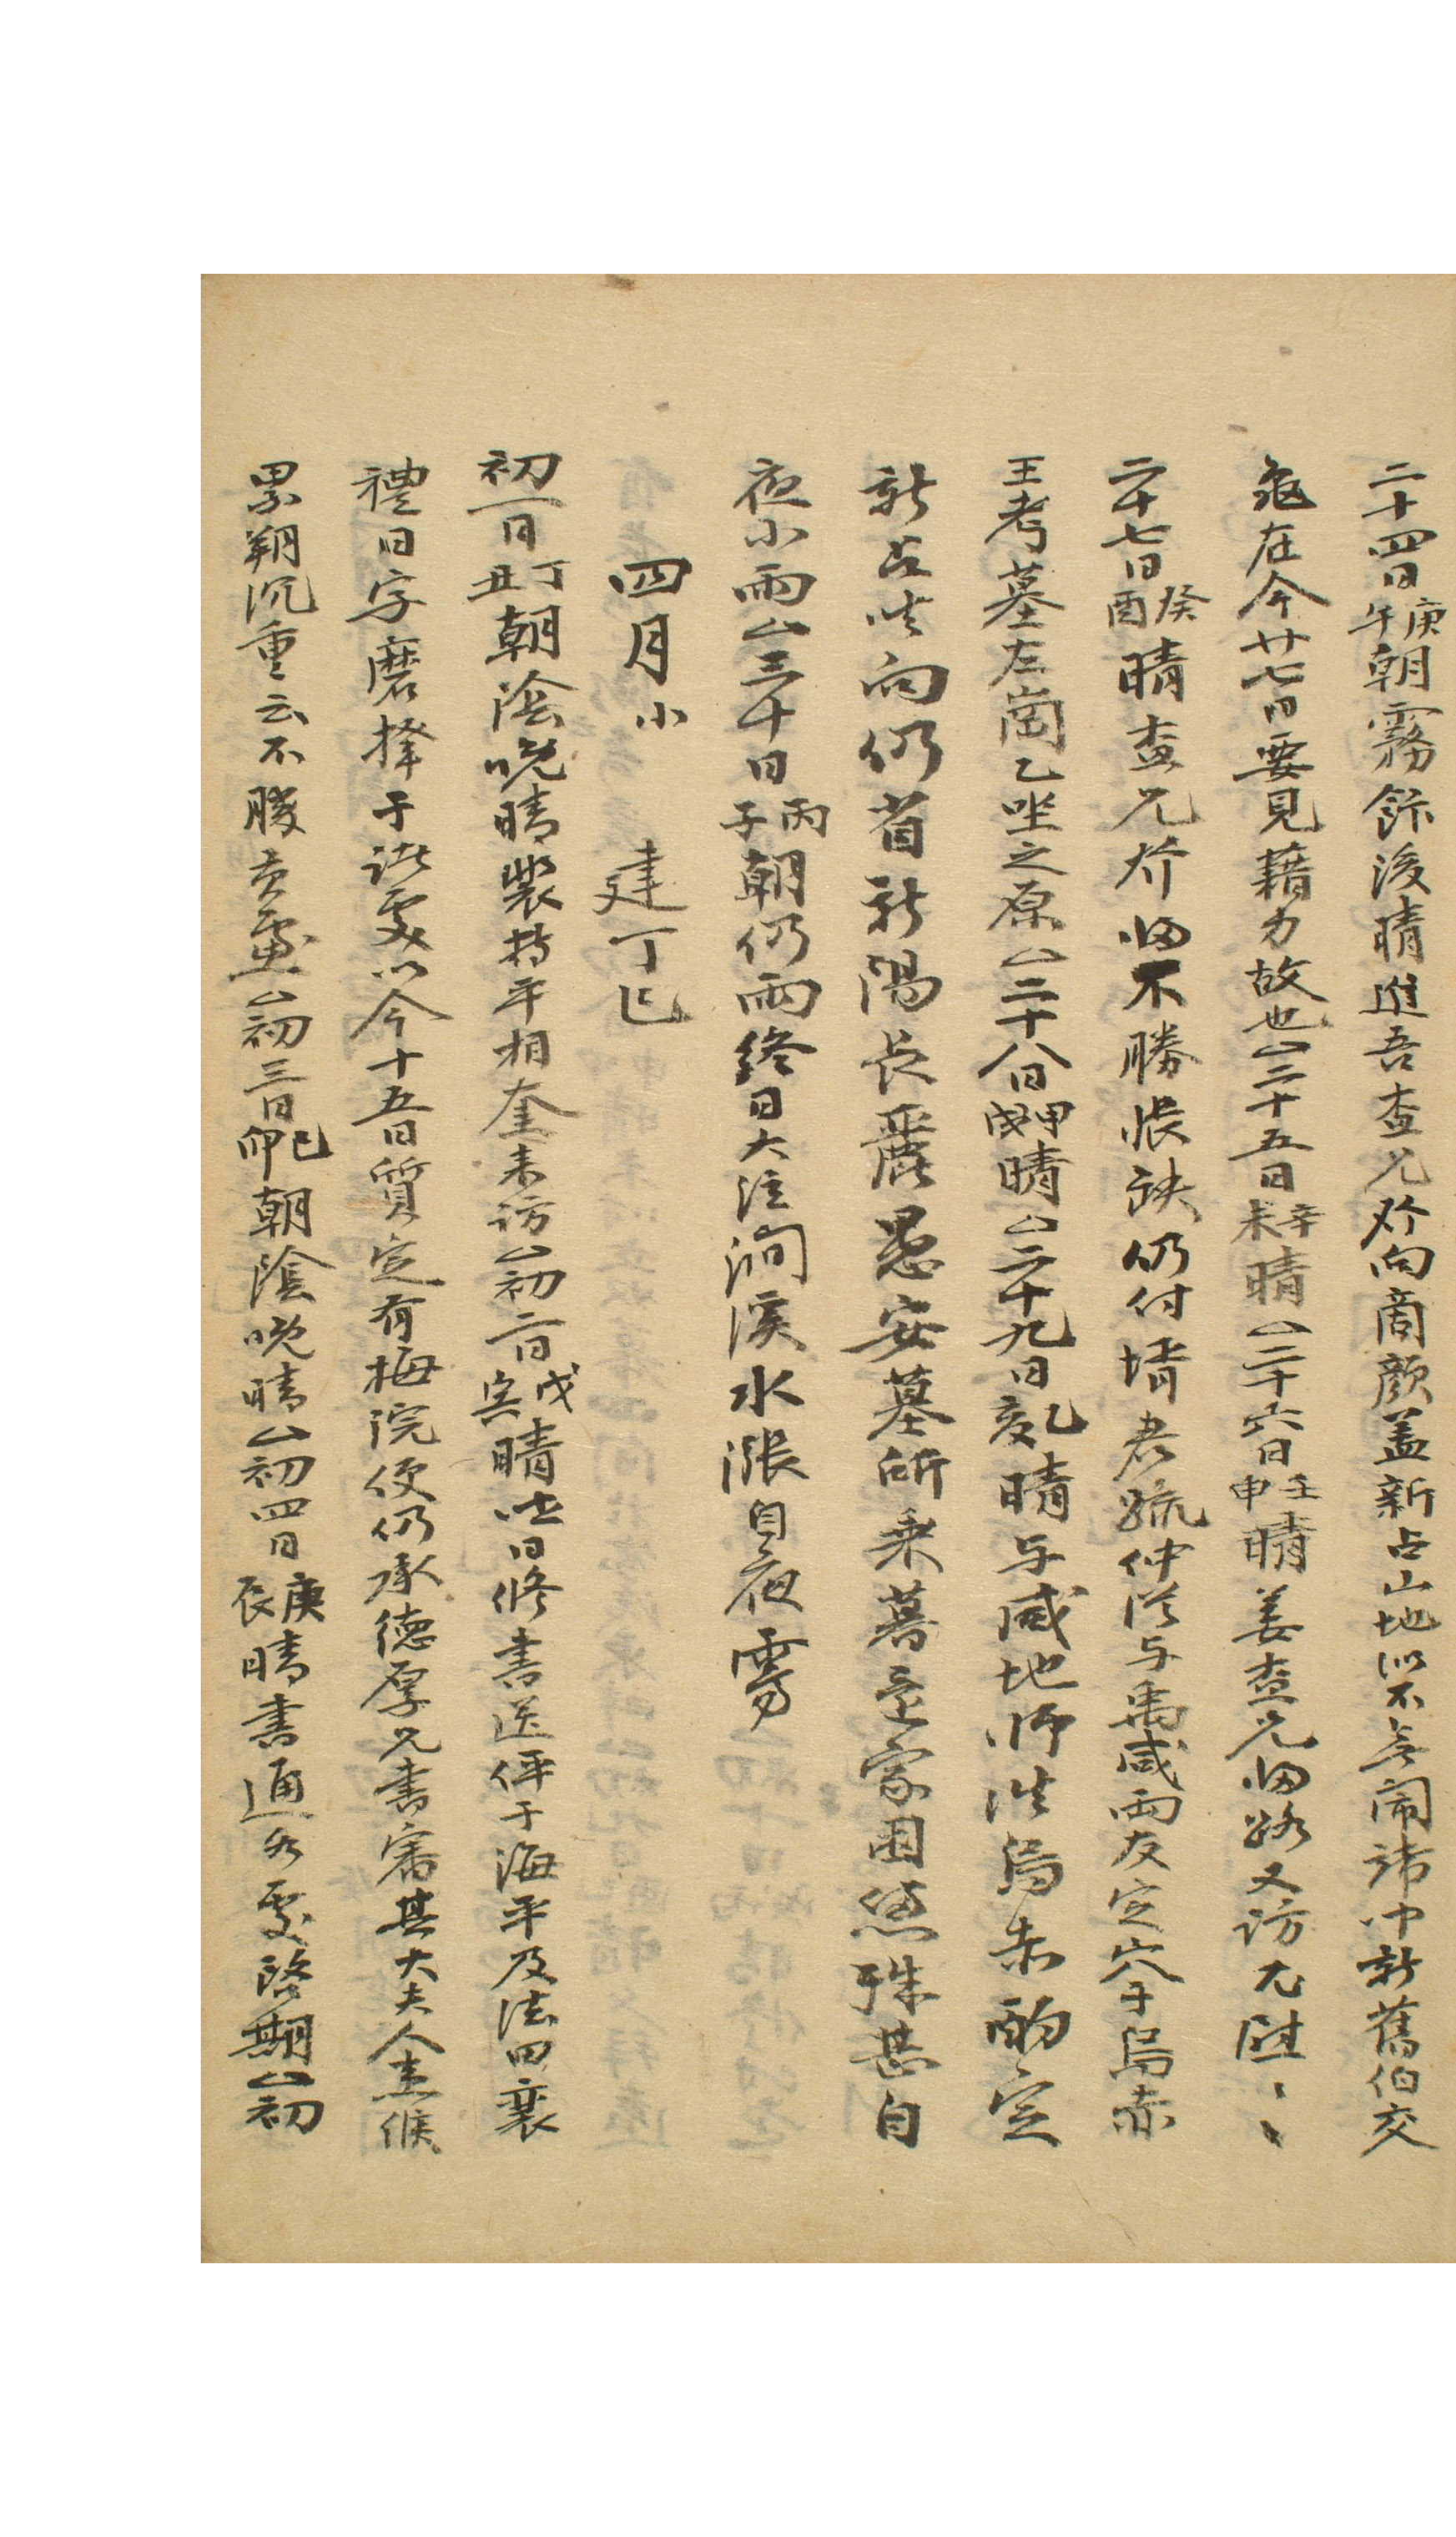 二十四日庚午朝霧餘後晴進吾査兄斤向商顔盖新占山地以不无鬧㫌中新舊伯交
龜在今廿七日要見藉力故也△二十五日辛未晴△二十六日壬申晴姜査兄㱕路又訪尤陞〻〻
二十七日癸酉晴査兄斤㱕不勝悵缺仍付壻君䟽仲從与禹咸兩友定穴于烏赤
王考墓左崗乙坐之原△二十八日甲戌晴△二十九日乙亥晴与咸地师往烏赤酌定
新占坐向仍省新陽長麗愚安墓所乘暮還家困憊殊甚自
夜小雨△三十日丙子朝仍雨終日大注澗溪水漲自夜霽
四月小 建丁巳
初一日丁丑朝陰晩晴裴持平相奎来訪△初二日戊寅晴此日修書送伻于海平及法田襄
禮日字磨擇于诸處以今十五日質定有梅院便仍承德厚兄書審其大夫人患候
累朔沉重云不勝贡慮△初三日己卯朝陰晩晴△初四日庚辰晴書通各處啓期△初